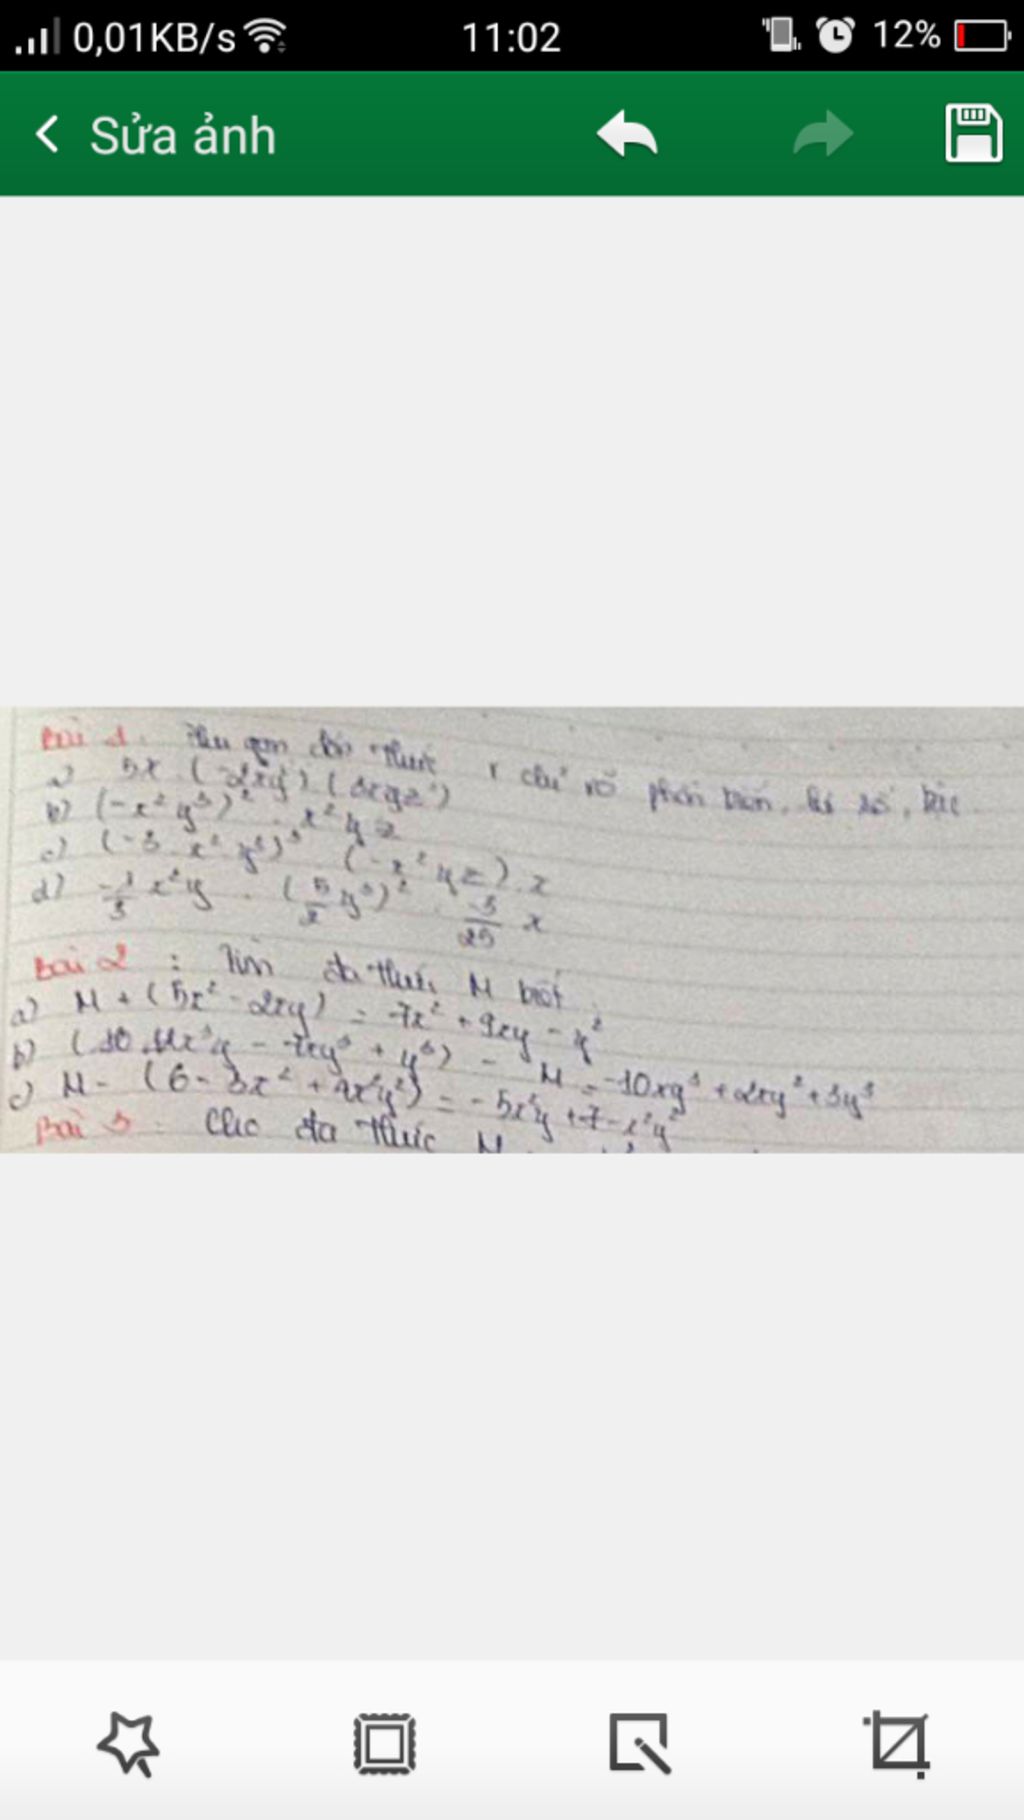 0,01KB/s 11:02 12%
Sửa ảnh
Bài 1. Thu gọn đơn thức, chỉ rõ phần biến, hệ số, bậc
a) 5x (-2xy²)
b) (-x²y³)² . x²yz
c) (-3 x² y²)³ (-x²yz) . z
d) x²y . y³)² . -3/25 x
Bài 2 : Tìm đa thức M biết
a) M + (5x² - 2xy) = -7x² + 9xy - y²
b) - 7xy³ + y³) - M = -10xy³ + 2xy² + 3y³
c) M - (6 - 3x² + 4x²y²) = - 5x²y + 7 - x²y²
Bài 3 : Cho đa thức M